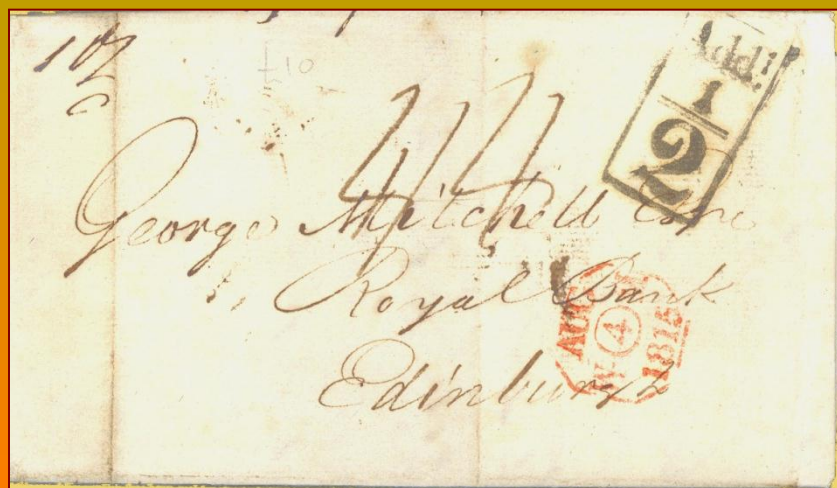 1 oz
£10
4/4
Addl
1/2
George Mitchell Esqre
Royal Bank
Edinburgh
AUG
4
1815